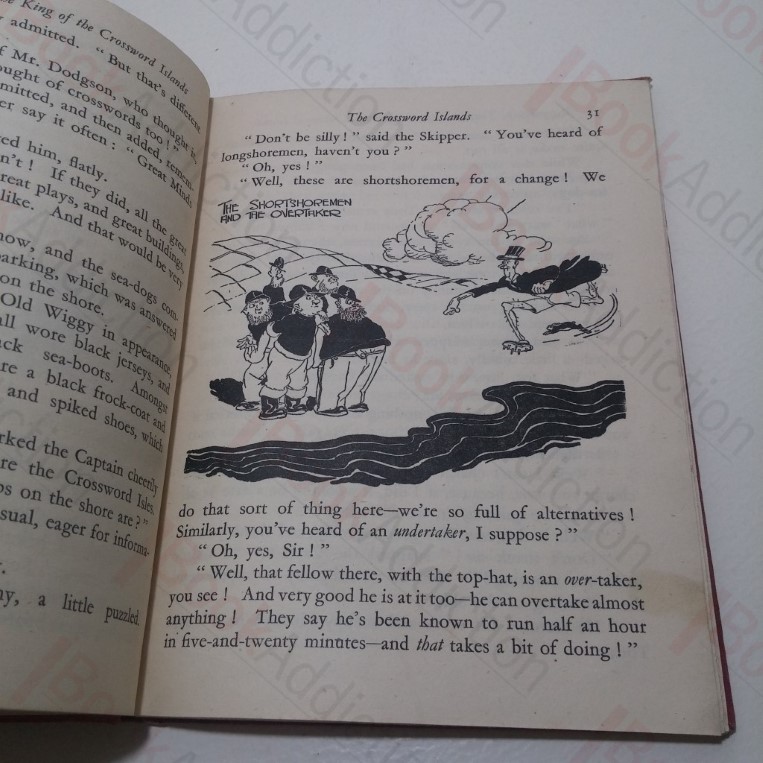 King of the Crossword Islands
admitted. “ But that's different
Mr. Dodgson, who thought it,
ought of crosswords too ! ”
mitted, and then added, remem-
er say it often : “ Great Minds
ed him, flatly.
n't ! If they did, all the great
reat plays, and great buildings,
like. And that would be very
now, and the sea-dogs com-
arking, which was answered
on the shore.
Old Wiggy in appearance,
all wore black jerseys, and
ck sea-boots. Amongst
re a black frock-coat and
and spiked shoes, which
rked the Captain cheerily
re the Crossword Isles.
ps on the shore are ? ”
sual, eager for informa-
y, a little puzzled.
The Crossword Islands 31
“ Don't be silly ! ” said the Skipper. “ You've heard of
longshoremen, haven't you ? ”
“ Oh, yes ! ”
“ Well, these are shortshoremen, for a change ! We
THE SHORTSHOREMEN
AND THE OVERTAKER
do that sort of thing here—we're so full of alternatives !
Similarly, you've heard of an undertaker, I suppose ? ”
“ Oh, yes, Sir ! ”
“ Well, that fellow there, with the top-hat, is an over-taker,
you see ! And very good he is at it too—he can overtake almost
anything ! They say he's been known to run half an hour
in five-and-twenty minutes—and that takes a bit of doing ! ”
Book Addiction